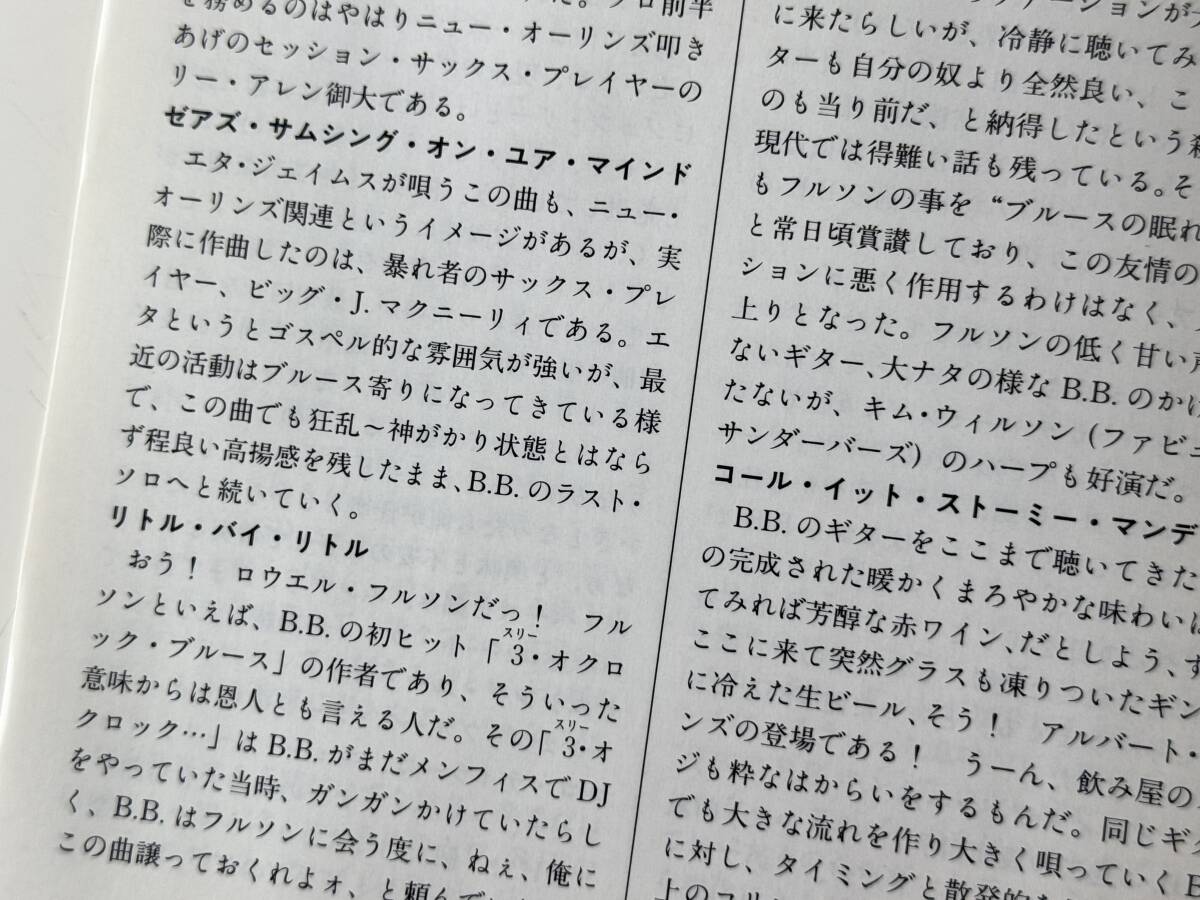 を務めるのはやはりニュー・オーリンズ叩き
あげのセッション・サックス・プレイヤーの
リー・アレン御大である。
ゼアズ・サムシング・オン・ユア・マインド
エタ・ジェイムスが唄うこの曲も、ニュー・
オーリンズ関連というイメージがあるが、実
際に作曲したのは、暴れ者のサックス・プレ
イヤー、ビッグ・J.マクニーリィである。エ
タというとゴスペル的な雰囲気が強いが、最
近の活動はブルース寄りになってきている様
で、この曲でも狂乱～神がかり状態とはなら
ず程良い高揚感を残したまま、B.B.のラスト・
ソロへと続いていく。
リトル・バイ・リトル
おう！　ロウエル・フルソンだっ！　フル
ソンといえば、B.B.の初ヒット「3・オクロ
スリー
ック・ブルース」の作者であり、そういった
意味からは恩人とも言える人だ。その「3・オ
スリー
クロック…」はB.B.がまだメンフィスでDJ
をやっていた当時、ガンガンかけていたらし
く、B.B.はフルソンに会う度に、ねぇ、俺に
この曲譲っておくれよォ、と頼んで
に来たらしいが、冷静に聴いてみ
ターも自分の奴より全然良い、こ
のも当り前だ、と納得したという
現代では得難い話も残っている。そ
もフルソンの事を“ブルースの眠れ
と常日頃賞讃しており、この友情の
ションに悪く作用するわけはなく、
上りとなった。フルソンの低く甘い声
ないギター、大ナタの様なB.B.のかけ
たないが、キム・ウィルソン（ファビュ
サンダーバーズ）のハープも好演だ。
コール・イット・ストーミー・マンデ
B.B.のギターをここまで聴いてきた
の完成された暖かくまろやかな味わいは
てみれば芳醇な赤ワイン、だとしよう、す
ここに来て突然グラスも凍りついたギン
に冷えた生ビール、そう！　アルバート・
ンズの登場である！　うーん、飲み屋の
ジも粋なはからいをするもんだ。同じギタ
でも大きな流れを作り大きく唄っていくB
に対し、タイミングと散発的な